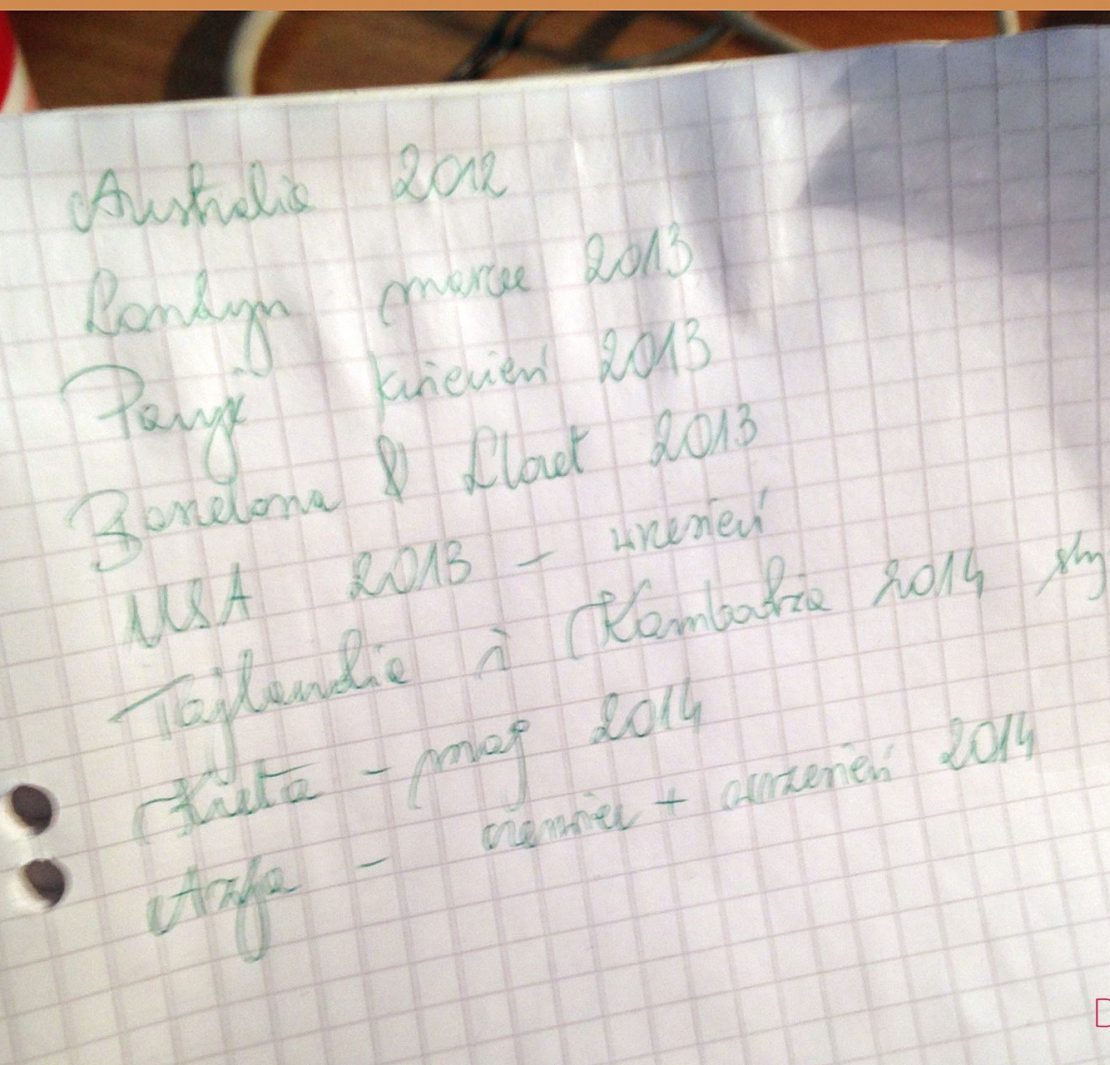 Australia 2012
Londyn marzec 2013
Paryż kwiecień 2013
Barcelona & Lloret 2013
USA 2013 - wrzesień
Tajlandia i Kambodża 2014 sty
Kreta - maj 2014
Azja - czerwiec + wrzesień 2014